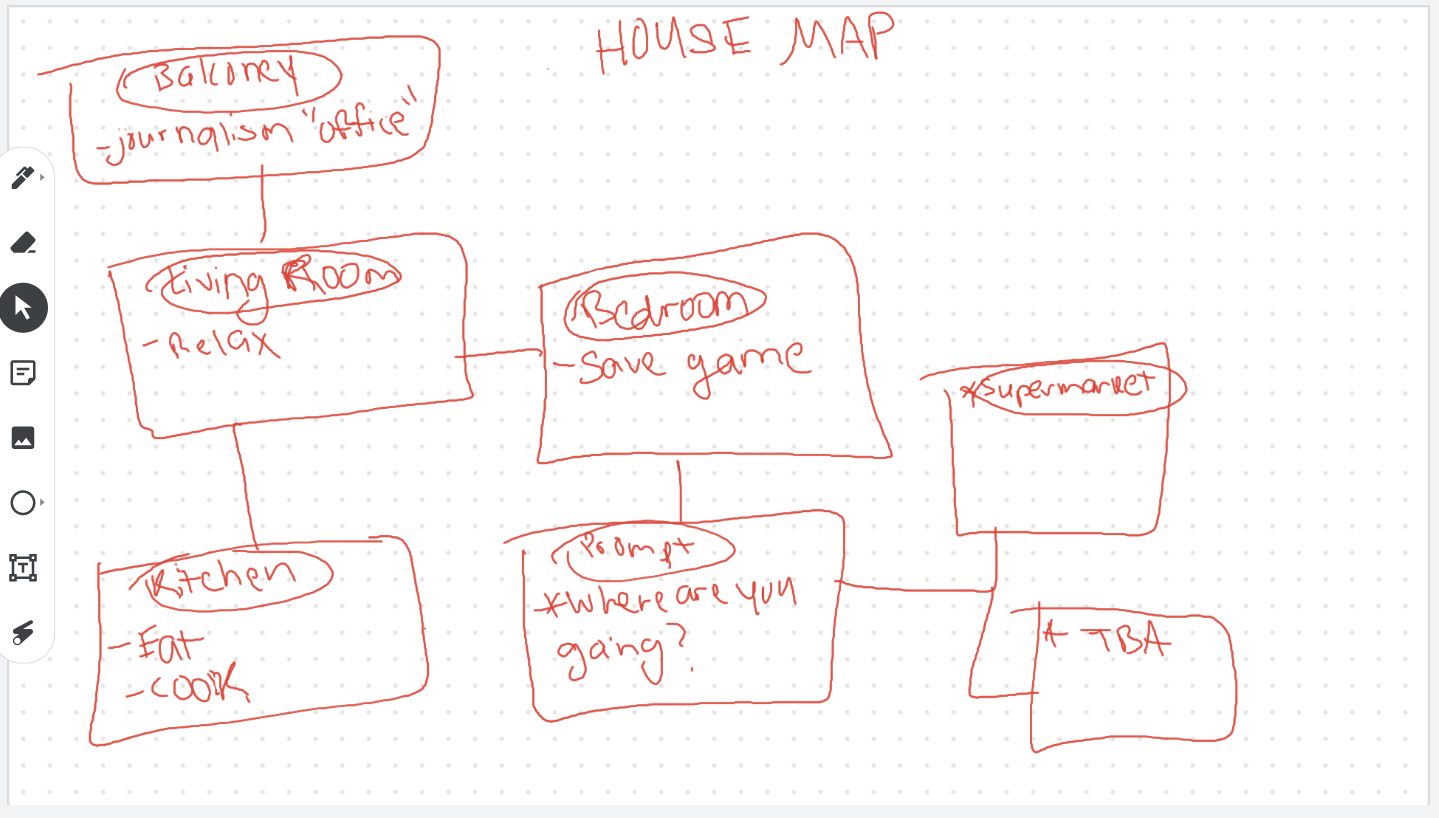 HOUSE MAP
Balconey
-journalism "office"
Living Room
-Relax
Bedroom
-Save game
*supermarket
Kitchen
-Eat
-cook
Prompt
*Where are you
going?
* TBA
T